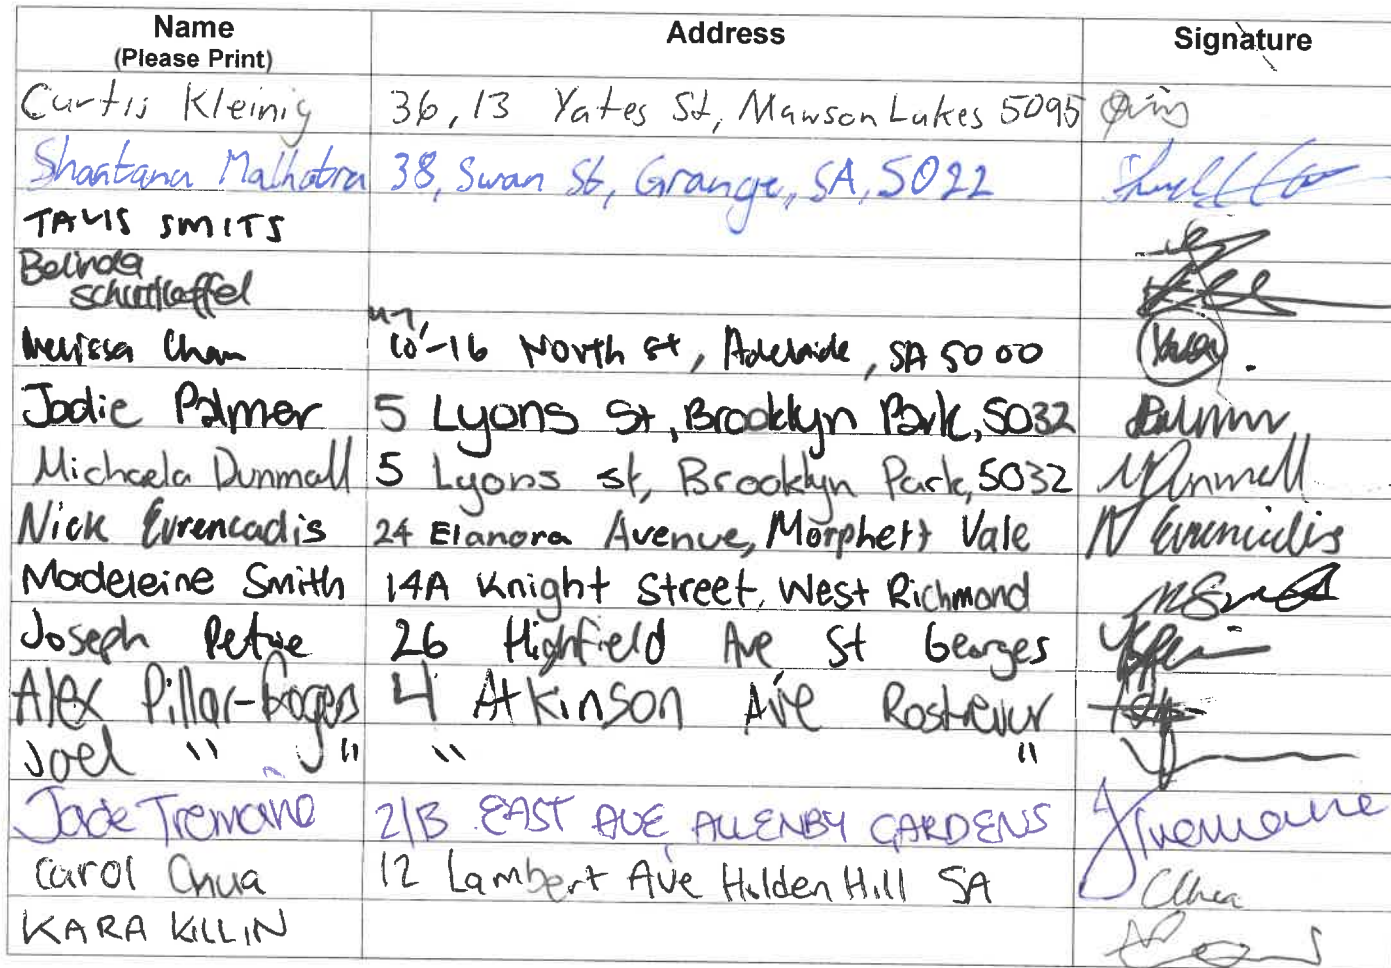 Name Address Signature
(Please Print)
Curtis Kleinig 36, 13 Yates St, Mawson Lakes 5095
Shantanu Malhotra 38, Swan St, Grange, SA, 5022
TAVIS SMITS
Belinda
Melissa Chan U7, 10-16 North st, Adelaide, SA 5000
Jodie Palmer 5 Lyons St, Brooklyn Park, 5032 Palmer
Michaela Dunmall 5 Lyons st, Brooklyn Park, 5032 MDunmall
Nick Evrencadis 24 Elanora Avenue, Morphett Vale N Evreniadis
Madeleine Smith 14A Knight Street, West Richmond
Joseph Petrie 26 Highfield Ave St Georges
Alex Pillar-Rogers 4 Atkinson Ave Rostrevor
Joel " " " "
Jade Tremaine 2/B EAST AVE, ALLENBY GARDENS JTremaine
Carol Chua 12 Lambert Ave Holden Hill SA CChua
KARA KILLIN